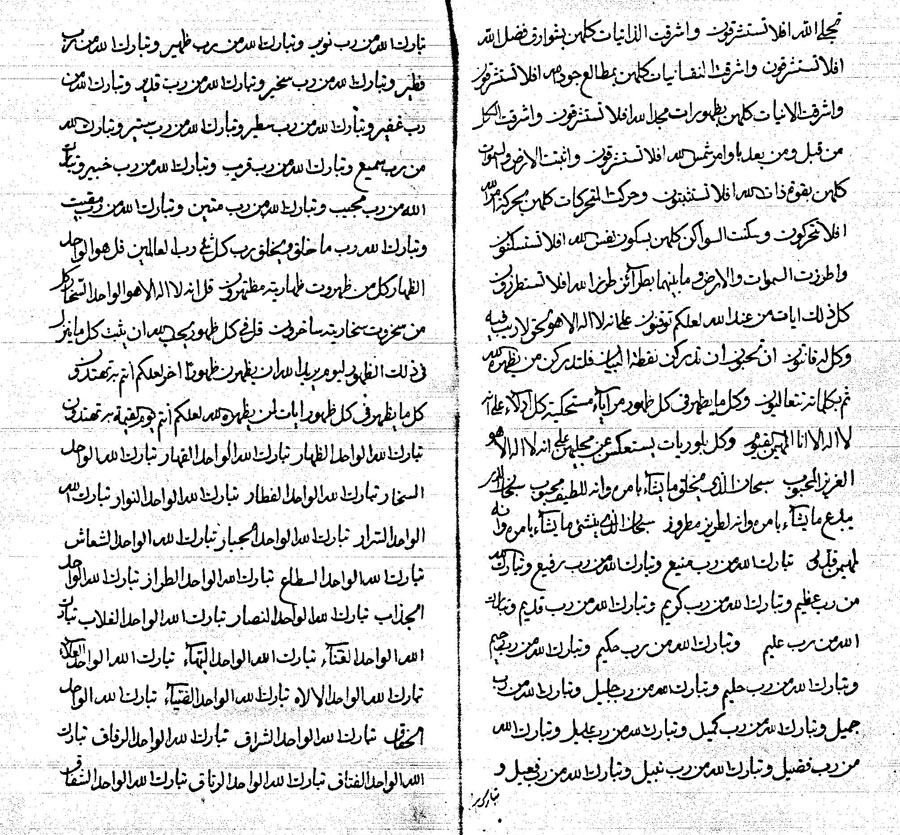 تجلي الله افلا تستشرقون واشرقت الذاتيات كلهن بشوارق فضل الله
افلا تستشرقون واشرقت النفسانيات كلهن بمطالع جود الله افلا تستشرقون
واشرقت الانيات كلهن بظهورات مجد الله افلا تستشرقون واشرقت الكل
من قبل ومن بعد باوامر شمس الله افلا تستشرقون واثبت الارض والسموات
كلهن بقوة ذات الله افلا تستثبتون وحركت المتحركات كلهن بحركة امر الله
افلا تتحركون وسكنت السواكن كلهن بسكون نفس الله افلا تستسكنون
واطرزت السموات والارض وما بينهما بطرائز طرز الله افلا تستطرزون
كل ذلك ايات من عند الله لعلكم توقنون علي انه لا اله الا هو لحق لا ريب فيه
وكل له قانتون ان تحبون ان تدركن نقطة البيان فلتدركن من يظهره الله
ثم بكلماته تتعاليون وكل ما يظهر في كل ظهور مرايا مستحكية كل ادلاء علي انه
لا اله الا انا المهيمن القيوم وكل بلوريات يستعكس عن مجليهن علي انه لا اله الا هو
العزيز المحبوب سبحان الذي يخلق ما يشاء بامره وانه للطيف محبوب سبحان الذي
يبدع ما يشاء بامره وانه لطريز مطروز سبحان الذي ينشئ ما يشاء بامره وانه
لمهيمن قيوم تبارك الله من رب منيع وتبارك الله من رب رفيع وتبارك الله
من رب عظيم وتبارك الله من رب كريم وتبارك الله من رب قديم وتبارك
الله من رب عليم وتبارك الله من رب حكيم وتبارك الله من رب رحيم
وتبارك الله من رب حليم وتبارك الله من رب جليل وتبارك الله من رب
جميل وتبارك الله من رب كميل وتبارك الله من رب عديل وتبارك الله
من رب فضيل وتبارك الله من رب نبيل وتبارك الله من رب فعيل و
تبارك
تبارك الله من رب نوير وتبارك الله من رب ظهير وتبارك الله من رب
فطير وتبارك الله من رب سخير وتبارك الله من رب قدير وتبارك الله من
رب غفير وتبارك الله من رب سطير وتبارك الله من رب ستير وتبارك الله
من رب سميع وتبارك الله من رب قريب وتبارك الله من رب خبير وتبارك
الله من رب مجيب وتبارك الله من رب متين وتبارك الله من رب مقيت
وتبارك الله رب ما خلق ويخلق رب كل شئ رب العالمين قل هو الواحد
الظهار كل من ظهروت ظهاريته مظتهرون قل انه لا اله الا هو الواحد السخار كل
من سخروت سخاريته ساخرون قل في كل ظهور يحب الله ان يثبت كل ما ينزل
في ذلك الظهور ليوم يريد الله ان يظهرن ظهورا اخر لعلكم انتم به تهتدون
كل ما يظهر في كل ظهور ايات لمن يظهره الله لعلكم انتم يوم القيمة به تهتدون
تبارك الله الواحد الظهار تبارك الله الواحد القهار تبارك الله الواحد
السخار تبارك الله الواحد الفطار تبارك الله الواحد النوار تبارك الله
الواحد التزار تبارك الله الواحد الجبار تبارك الله الواحد الشعاش
تبارك الله الواحد السطاع تبارك الله الواحد الطراز تبارك الله الواحد
الجذاب تبارك الله الواحد النصار تبارك الله الواحد الغلاب تبارك
الله الواحد الغناء تبارك الله الواحد البهاء تبارك الله الواحد العلاء
تبارك الله الواحد الالاه تبارك الله الواحد الضياء تبارك الله الواحد
الحقاق تبارك الله الواحد الشراق تبارك الله الواحد الرفاق تبارك
الله الواحد الفتاق تبارك الله الواحد الرتاق تبارك الله الواحد الشفاق